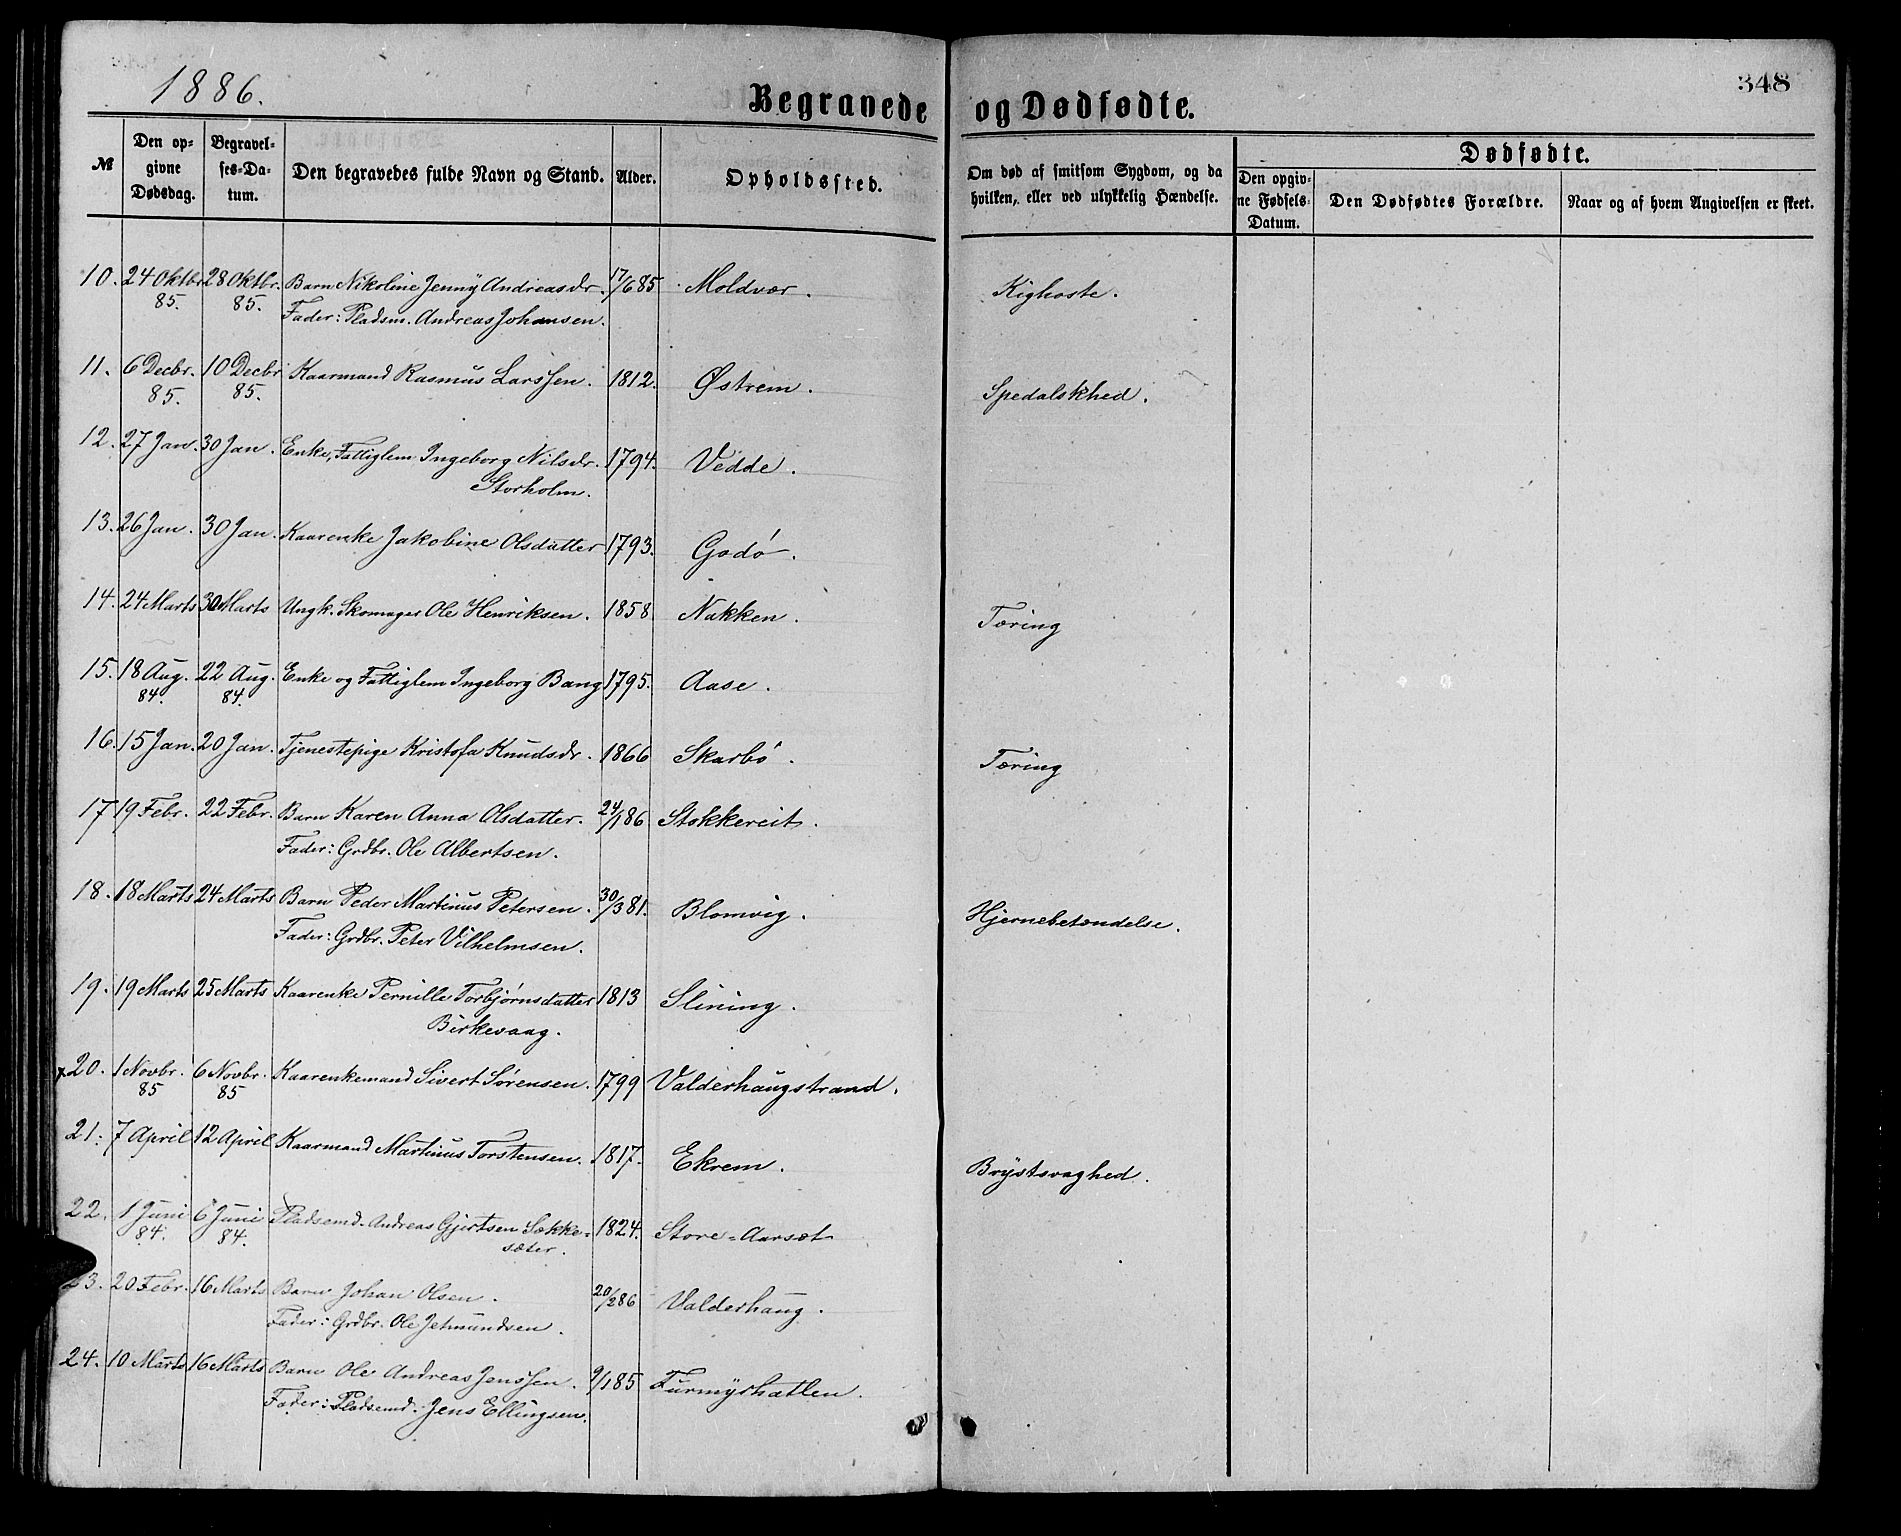 1886.
Begravede og Dødfødte.
348
№
Den opgivne Dødsdag.
Begravelses-Datum.
Den begravedes fulde Navn og Stand.
Alder.
Opholdssted.
Om død af smitsom Sygdom, og da hvilken, eller ved ulykkelig Hændelse.
Dødfødte.
Den opgivne Fødsels-Datum.
Den Dødfødtes Forældre.
Naar og af hvem Angivelsen er skeet.
10. 24 Oktbr 85. 28 Oktbr. 85. Barn Nikoline Jenny Andreasdr. 17/6 85 Moldvær. Kighoste.
Fader: Pladsm. Andreas Johansen.
11. 6 Decbr. 85. 10 Decbr 85. Kaarmand Rasmus Larssen. 1812. Østrem. Spedalskhed.
12. 27 Jan. 30 Jan. Enke, Fattiglem Ingeborg Nilsdr. 1794. Vedde.
Storholm.
13. 26 Jan. 30 Jan. Kaarenke Jakobine Olsdatter 1793. Godø.
14. 24 Marts 30 Marts Ungk. Skomager Ole Henriksen. 1858 Nakken. Tæring
15. 18 Aug. 84. 22 Aug. 84. Enke og Fattiglem Ingeborg Bang 1795. Aase.
16. 15 Jan. 20 Jan. Tjenestepige Kristofa Knudsdr. 1866 Skarbø. Tæring
17 19 Febr. 22 Febr. Barn Karen Anna Olsdatter. 24/1 86 Stokkereit.
Fader: Grdbr. Ole Albertsen.
18. 18 Marts 24 Marts Barn Peder Martinus Petersen. 30/3 81. Blomvig. Hjernebetændelse.
Fader: Grdbr. Peter Vilhelmsen.
19. 19 Marts 25 Marts Kaarenke Pernille Torbjørnsdatter 1813 Slining.
Birkevaag.
20. 1 Novbr. 85 6 Novbr. 85 Kaarenkemand Sivert Sørensen. 1799 Valderhaugstrand.
21. 7 April 12 April Kaarmand Martinus Torstensen. 1817. Ekrem. Brystsvaghed.
22. 1 Juni 84. 6 Juni 84. Pladsemd. Andreas Gjertsen Sække- 1824. Store-Aarsæt
sæter.
23. 20 Febr. 16 Marts Barn Johan Olsen. 20/2 86 Valderhaug.
Fader: Grdbr. Ole Jetmundsen.
24. 10 Marts 16 Marts Barn Ole Andreas Jenssen. 9/1 85 Furmyrhatlen.
Fader: Pladsemd. Jens Ellingsen.